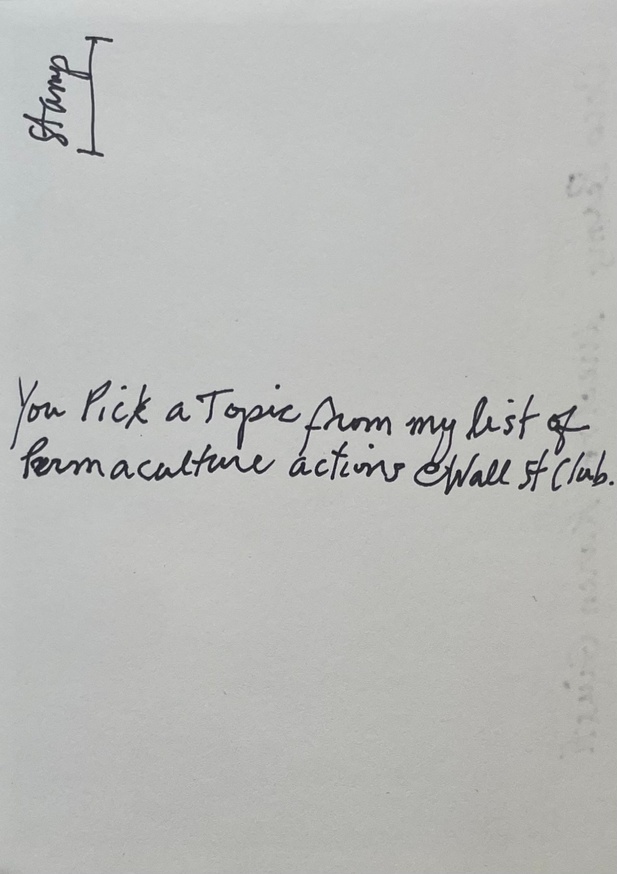 Stamp
You Pick a Topic from my list of
Permaculture actions @Wall St Club.